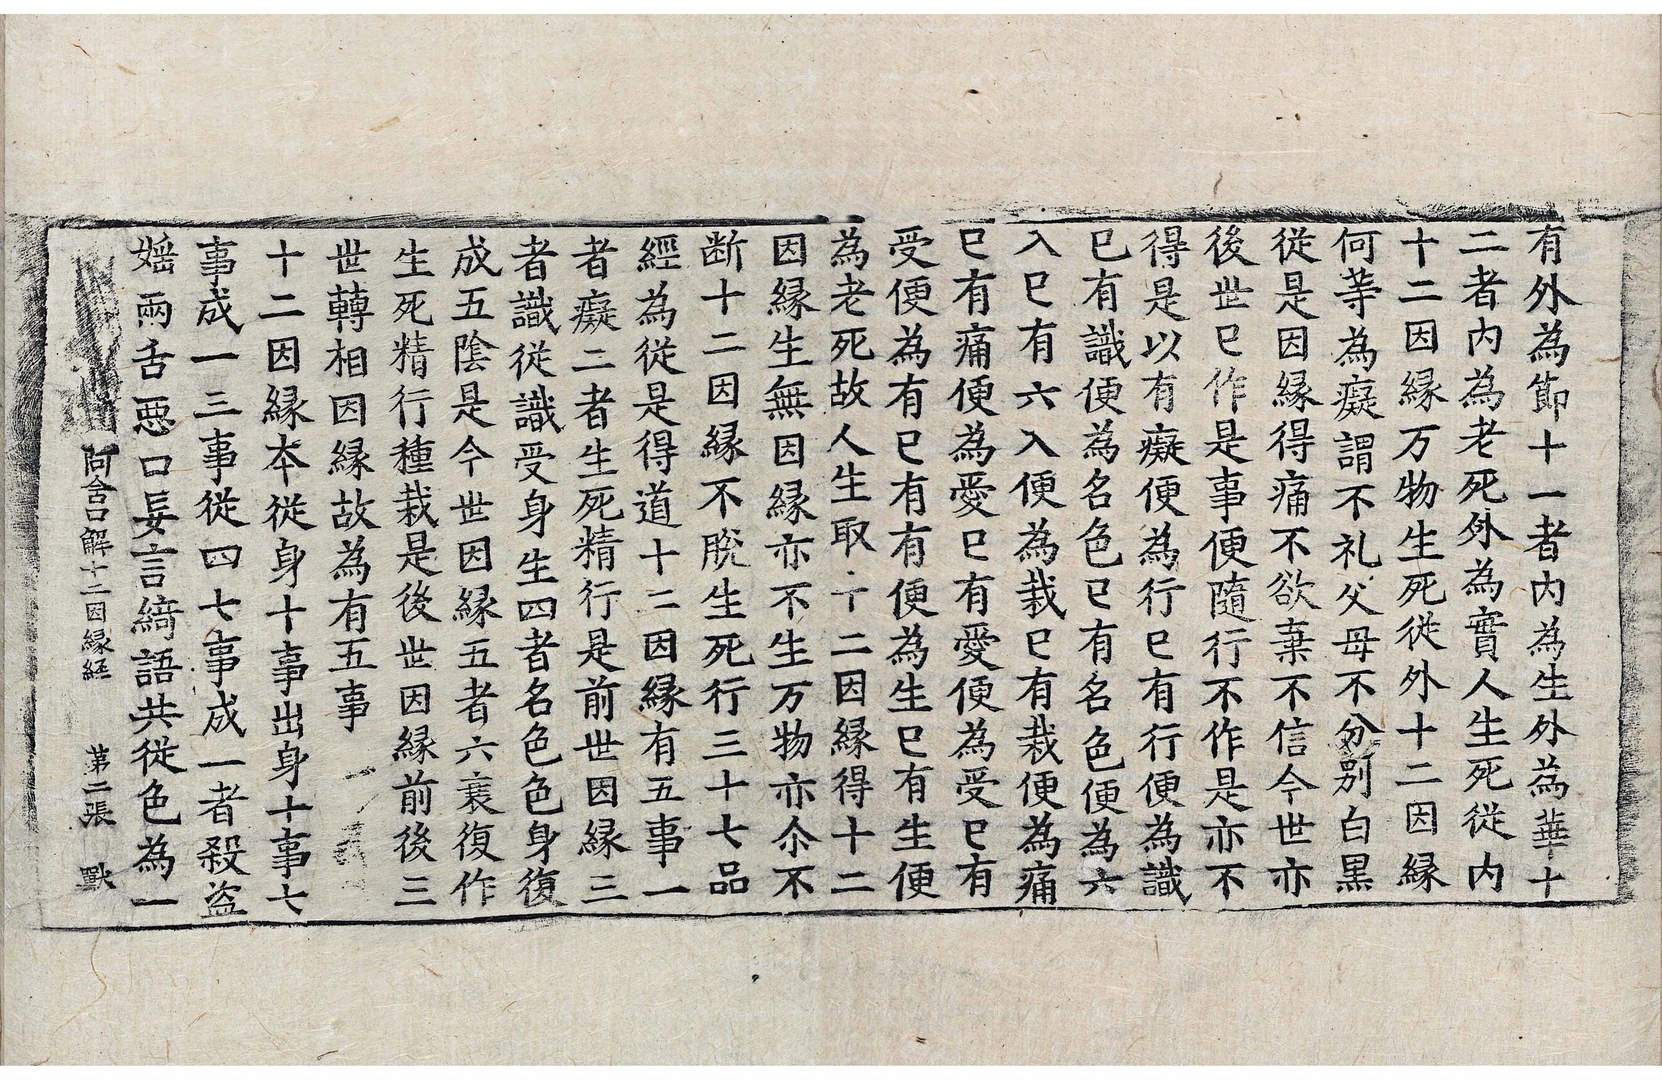 有外為節十一者內為生外為華十
二者內為老死外為實人生死從內
十二因縁万物生死従外十二因縁
何䓁為癡謂不礼父母不分别白黒
從是因縁得痛不欲棄不信今世亦
後世巳作是事便隨行不作是亦不
得是以有癡便為行巳有行便為識
巳有識便為名色巳有名色便為六
入巳有六入便為栽巳有栽便為痛
巳有痛便為愛巳有愛便為受巳有
受便為有巳有有便為生巳有生便
為老死故人生取十二因縁得十二
因縁生無因縁亦不生万物亦尒不
断十二因縁不脫生死行三十七品
經為從是得道十二因縁有五事一
者癡二者生死精行是前世因縁三
者識從識受身生四者名色色身復
成五陰是今世因縁五者六衰復作
生死精行種栽是後世因縁前後三
世轉相因縁故為有五事
十二因縁本從身十事出身十事七
事成一三事從四七事成一者殺盗
婬兩舌惡口妄言綺語共從色為一
阿含口解十二因縁経 第二張 獸